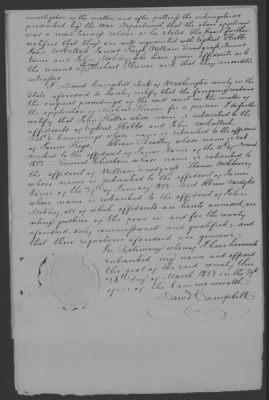 investigation of the matter, and after putting the interrogatories
prescribed by the War Department, that the above applicant
was a revolutionary soldier as he states. The Court further
certifies that they are well acquainted with
John McCulloch James Keys William Snodgrass James
Vance and John Mobley who have given affidavits as to
the services of Michael and that they are credible
witnesses
I David Campbell clerk of Washington county in the
State aforesaid do hereby certify that the foregoing contains
the original proceedings of the said court in the matter of
the application of Michael for a pension. I do further
certify that John Keller whose name is subscribed to the
affidavits of and John McCulloch
whose name is subscribed to the affidavit
of James Keys, Hiram Bradley whose name is sub-
scribed to the affidavit of James Vance of the
1833 whose name is
subscribed to the affidavit of William Snodgrass Thomas
whose name is subscribed to the affidavit of James
Vance of the 24th of January 1833 and
whose name is subscribed to the affidavit of John
Mobley, all of which affidavits are hereto annexed, are
acting justices of the peace in and for the county
aforesaid, duly commissioned and qualified, and
that their signatures aforesaid are genuine.
In Testimony whereof I have hereunto
subscribed my name and affixed
the seal of the said county this
28th day of March 1833 in the
year of the Commonwealth.
David Campbell